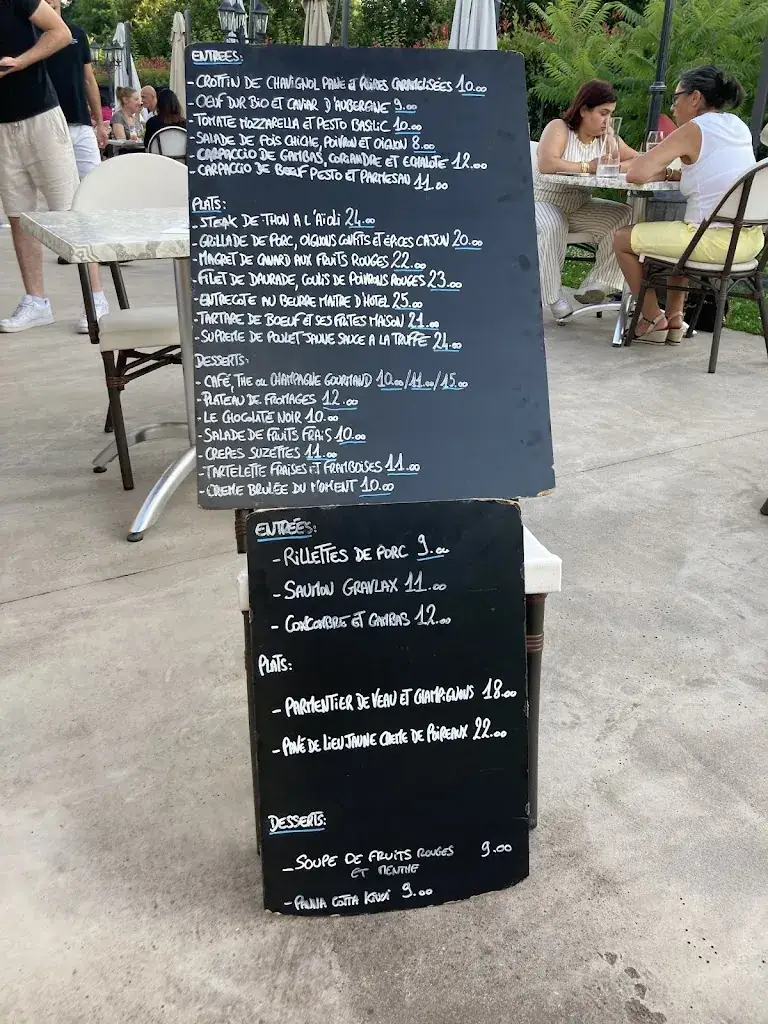 ENTREES:
- CROTTIN DE CHAVIGNOL PANÉ ET POIRES CARAMELISÉES 10.00
- OEUF DUR BIO ET CAVIAR D'AUBERGINE 9.00
- TOMATE MOZZARELLA ET PESTO BASILIC 10.00
- SALADE DE POIS CHICHE, POIVRON ET OIGNON 8.00
- CARPACCIO DE GAMBAS, CORIANDRE ET ECHALOTE 12.00
- CARPACCIO DE BOEUF PESTO ET PARMESAN 11.00
PLATS:
- STEAK DE THON A L'AÏOLI 24.00
- GRILLADE DE PORC, OIGNONS CONFITS ET ÉPICES CAJUN 20.00
- MAGRET DE CANARD AUX FRUITS ROUGES 22.00
- FILET DE DAURADE, COULIS DE POIVRONS ROUGES 23.00
- ENTRECOTE AU BEURRE MAITRE D'HOTEL 25.00
- TARTARE DE BOEUF ET SES FRITES MAISON 21.00
- SUPREME DE POULET JAUNE SAUCE A LA TRUFFE 24.00
DESSERTS:
- CAFÉ, THE OU CHAMPAGNE GOURMAND 10.00/11.00/15.00
- PLATEAU DE FROMAGES 12.00
- LE CHOCOLATÉ NOIR 10.00
- SALADE DE FRUITS FRAIS 10.00
- CREPES SUZETTES 11.00
- TARTELETTE FRAISES ET FRAMBOISES 11.00
- CREME BRULÉE DU MOMENT 10.00
ENTRÉES:
- RILLETTES DE PORC 9.00
- SAUMON GRAVLAX 11.00
- CONCOMBRE ET GAMBAS 12.00
PLATS:
- PARMENTIER DE VEAU ET CHAMPIGNONS 18.00
- PAVÉ DE LIEU JAUNE CREME DE POIREAUX 22.00
DESSERTS:
- SOUPE DE FRUITS ROUGES 9.00
ET MENTHE
- PANNA COTTA KIWI 9.00